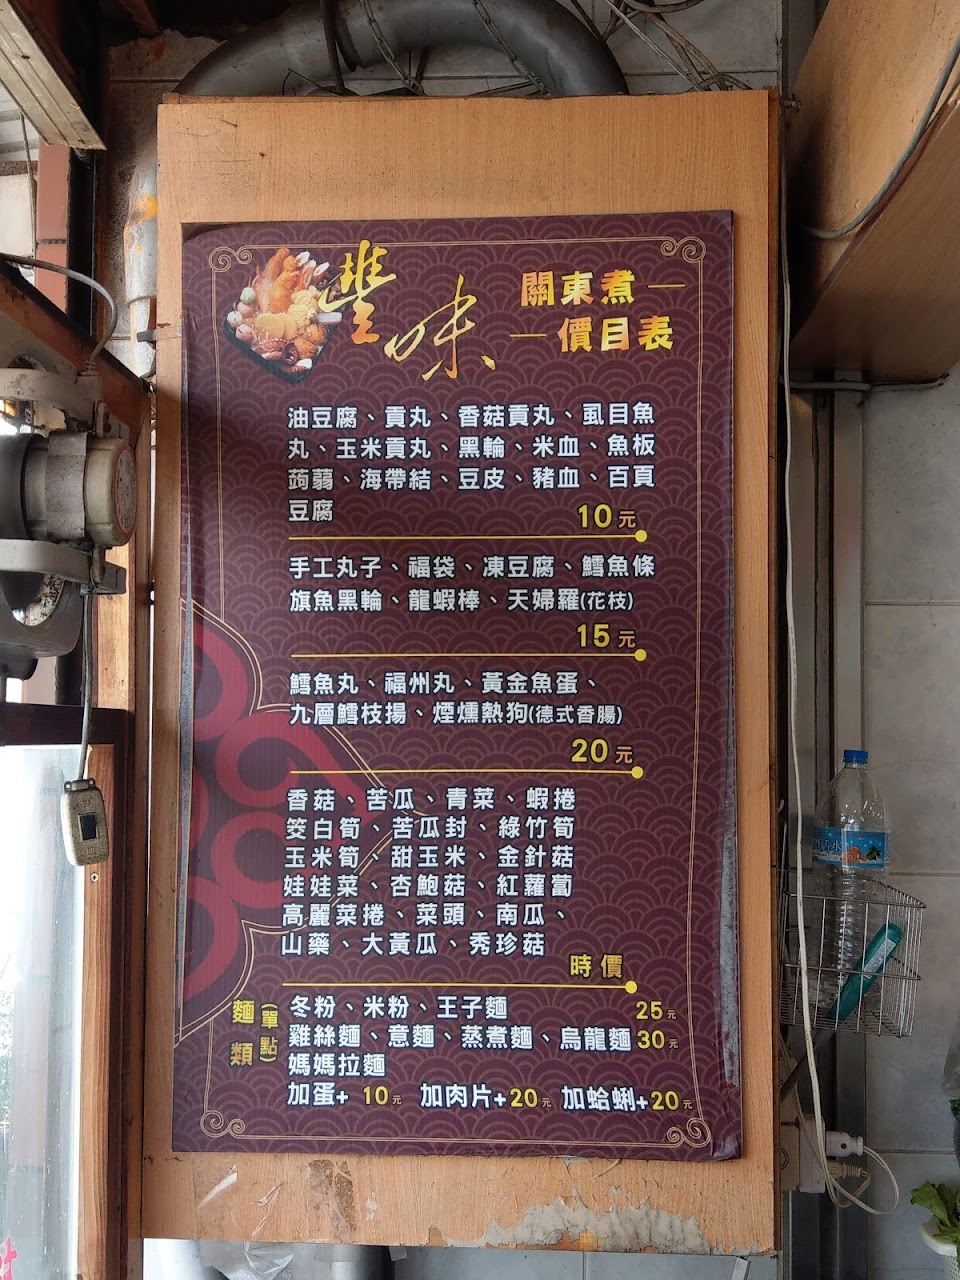 豐味
關東煮
價目表
油豆腐、貢丸、香菇貢丸、虱目魚
丸、玉米貢丸、黑輪、米血、魚板
蒟蒻、海帶結、豆皮、豬血、百頁
豆腐
10元
手工丸子、福袋、凍豆腐、鱈魚條
旗魚黑輪、龍蝦棒、天婦羅(花枝)
15元
鱈魚丸、福州丸、黃金魚蛋、
九層鱈枝揚、煙燻熱狗(德式香腸)
20元
香菇、苦瓜、青菜、蝦捲
筊白筍、苦瓜封、綠竹筍
玉米筍、甜玉米、金針菇
娃娃菜、杏鮑菇、紅蘿蔔
高麗菜捲、菜頭、南瓜、
山藥、大黃瓜、秀珍菇
時價
麵類(單點)
冬粉、米粉、王子麵 25元
雞絲麵、意麵、蒸煮麵、烏龍麵30元
媽媽拉麵
加蛋+ 10元 加肉片+20元 加蛤蜊+20元